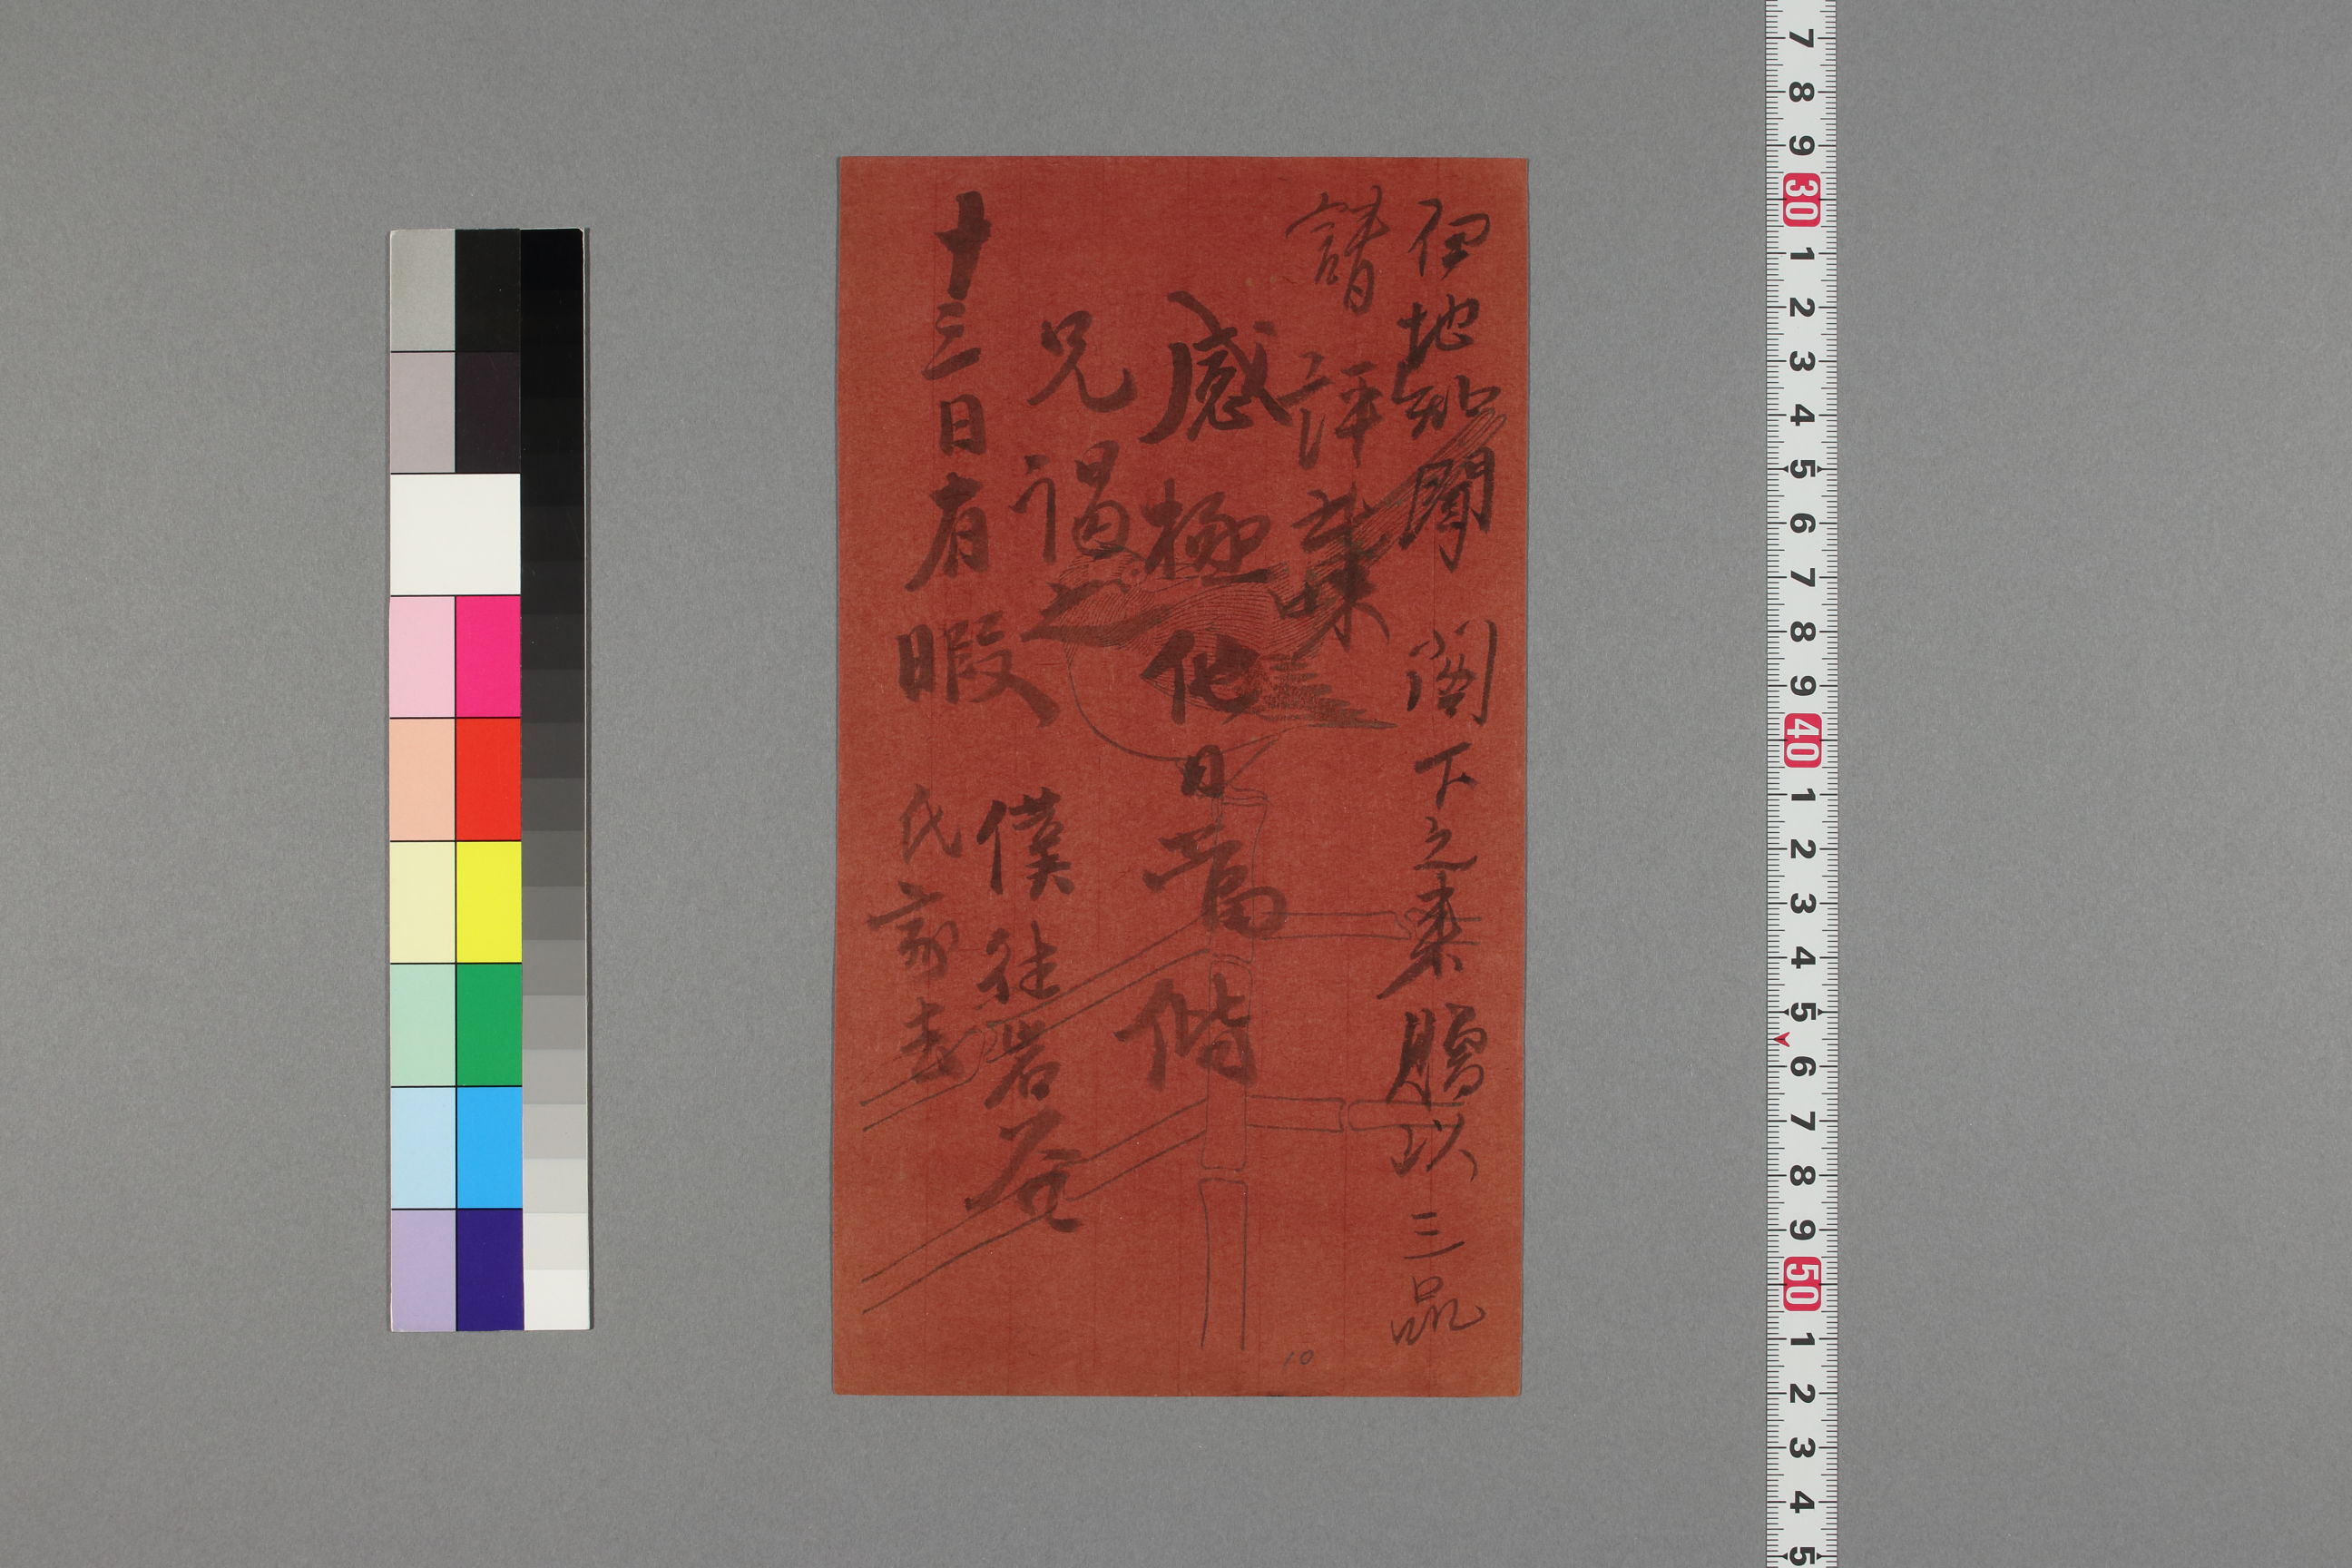 伊地知聞閣下之来贈以三品
請評
感極他日當偕
兄謁之
十三日有暇
僕往岩谷
氏家去
10
7 8 9 30 1 2 3 4 5 6 7 8 9 40 1 2 3 4 5 6 7 8 9 50 1 2 3 4 5